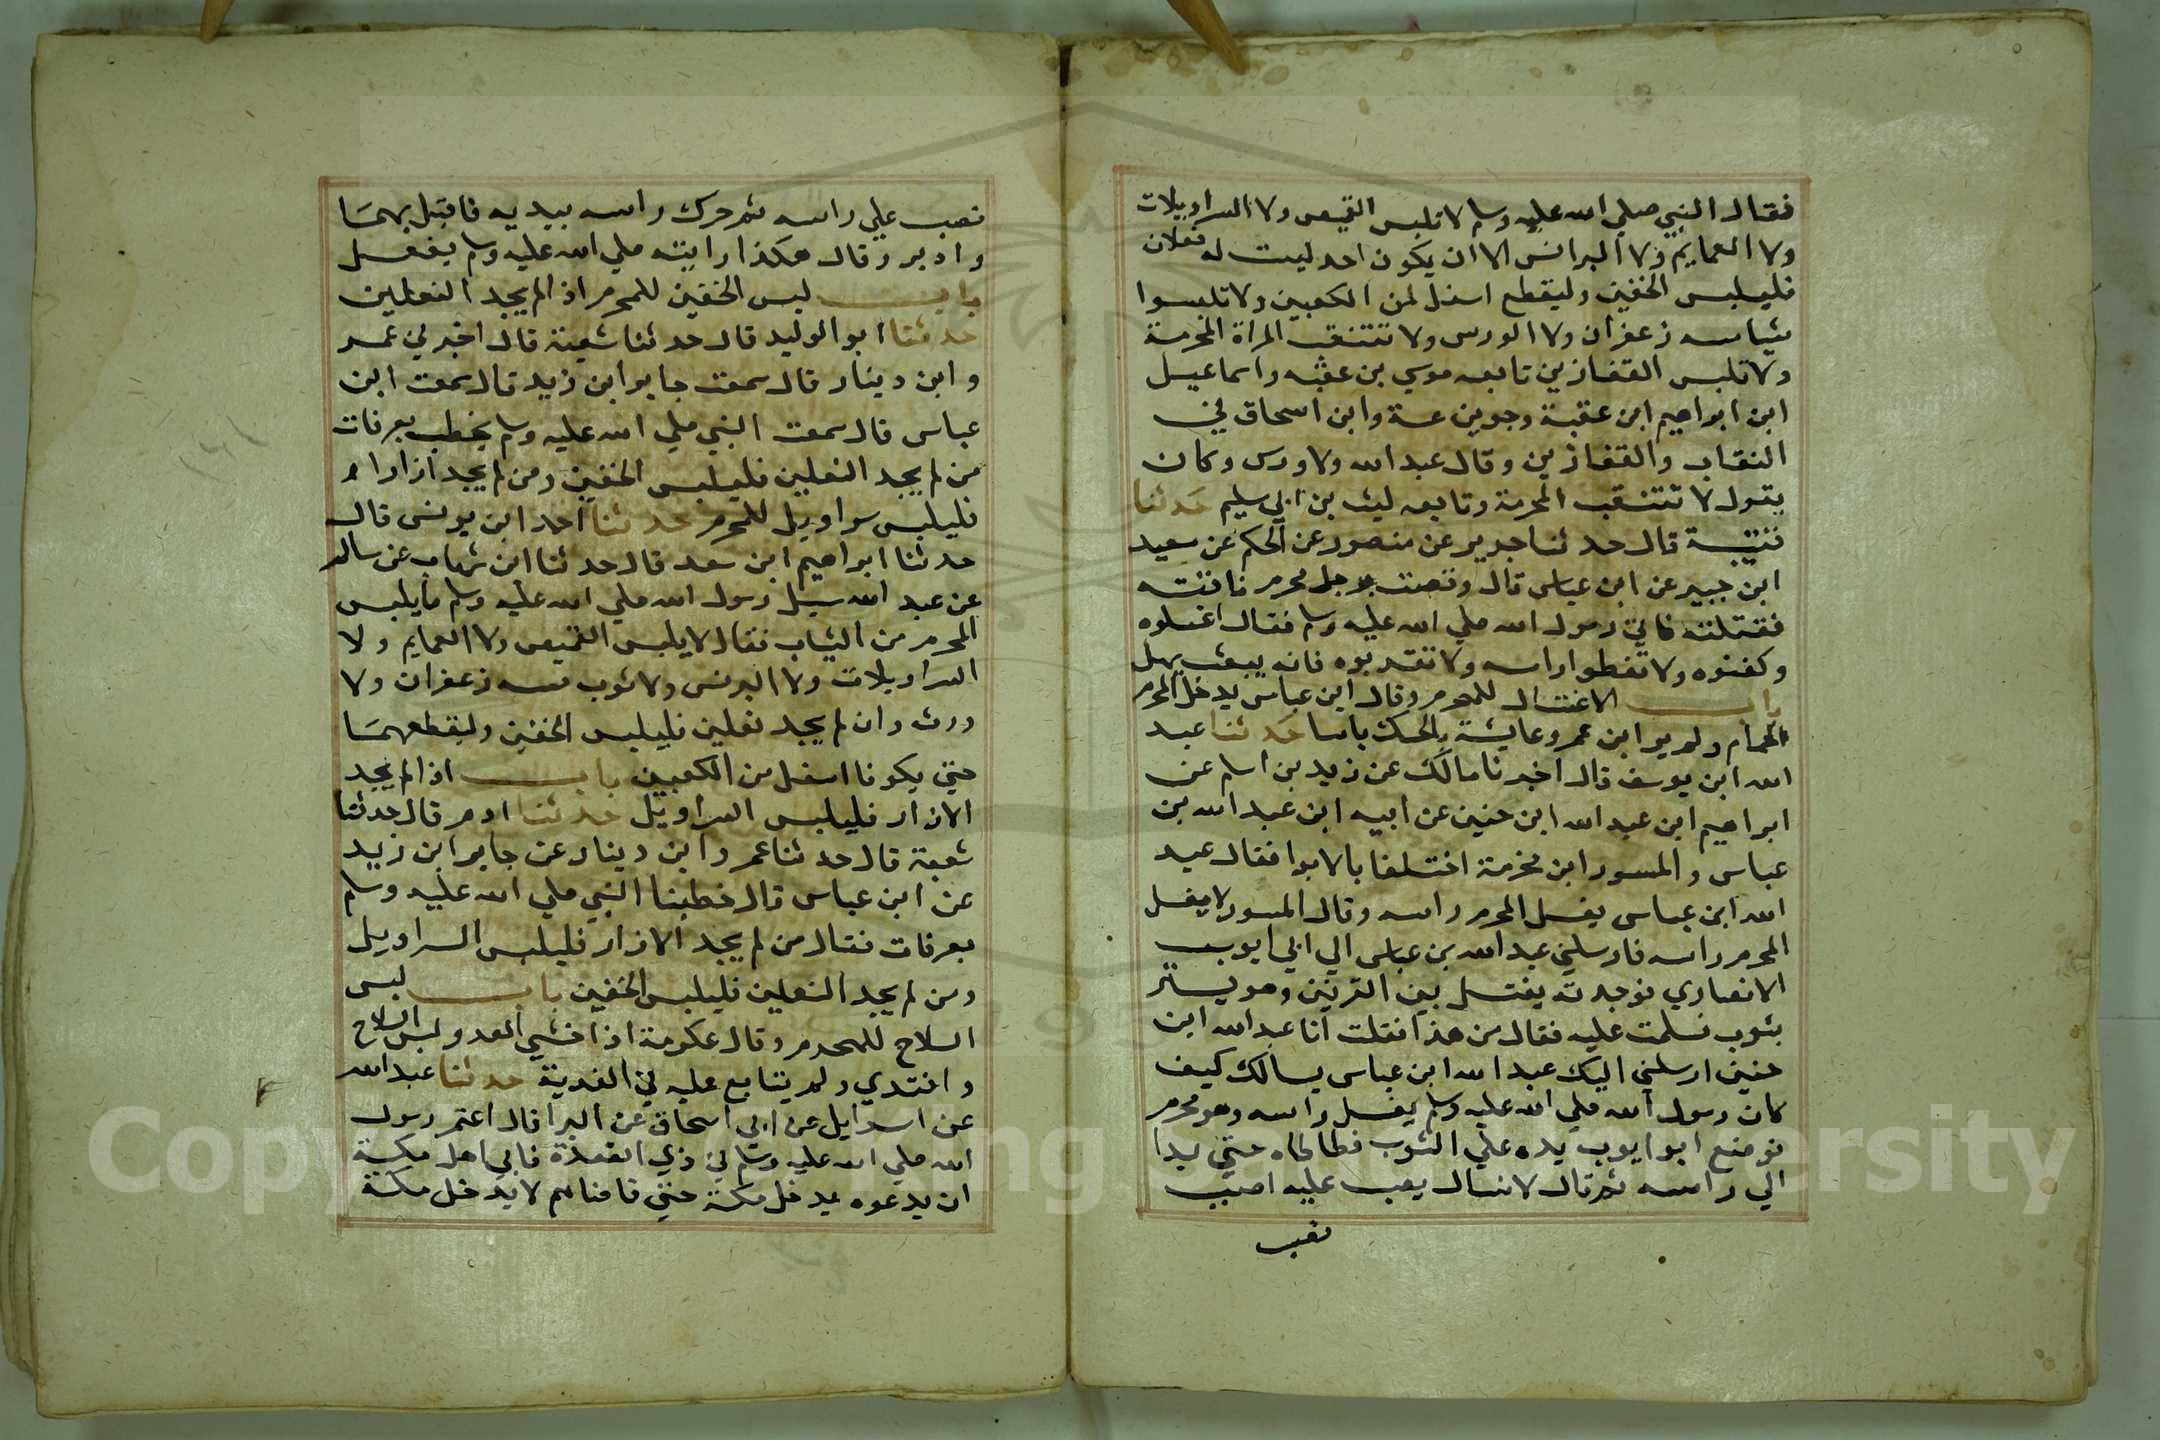 فقال النبي صلي الله عليه وسلم لا تلبس القميص ولا السراويلات
ولا العمايم ولا البرانس الا ان يكون احد ليست له نعلان
فليلبس الخفين وليقطع اسفل من الكعبين ولا تلبسوا
شيا مسه زعفران ولا الورس ولا تتنقب المراة المحرمة
ولا تلبس القفازين تابعه موسي بن عقبه واسماعيل
ابن ابراهيم ابن عقبة وجوين عسة وابن اسحاق في
النقاب والقفازين وقال عبد الله ولا ورس وكان
يقول لا تتنقب المحرمة وتابعه ليث بن ابي سليم حدثنا
قتيبة قال حدثنا جرير عن منصور عن الحكم عن سعيد
ابن جبير عن ابن عباس قال وقصت برجل محرم ناقته
فقتلته فاتي رسول الله صلي الله عليه وسلم فقال اغسلوه
وكفنوه ولا تغطوا راسه ولا تقربوه فانه يبعث يهل
باب الاغتسال للمحرم وقال ابن عباس يدخل المحرم
الحمام ولم ير ابن عمر وعايشة بالحك باسا حدثنا عبد
الله ابن يوسف قال اخبرنا مالك عن زيد بن اسلم عن
ابراهيم ابن عبد الله ابن حنين عن ابيه ابن عبد الله بن
عباس والمسور ابن مخرمة اختلفا بالابوا فقال عبد
الله ابن عباس يغسل المحرم راسه وقال المسور لا يغسل
المحرم راسه فارسلني عبد الله بن عباس الي ابي ايوب
الانصاري فوجدته يغتسل بين القرنين وهو يستر
بثوب فسلمت عليه فقال من هذا فقلت انا عبد الله ابن
حنين ارسلني اليك عبد الله ابن عباس يسالك كيف
كان رسول الله صلي الله عليه وسلم يغسل راسه وهو محرم
فوضع ابو ايوب يده علي الثوب فطاطاه حتي بدا
الي راسه ثم قال لانسال يصب عليه اصبب
نصب
نصب علي راسه ثم حرك راسه بيديه فاقبل بهما
وادبر وقال هكذا رايته صلي الله عليه وسلم يفعل
باب لبس الخفين للمحرم اذا لم يجد النعلين
حدثنا ابو الوليد قال حدثنا شعبة قال اخبرني عمر
وابن دينار قال سمعت جابر ابن زيد قال سمعت ابن
عباس قال سمعت النبي صلي الله عليه وسلم يخطب بعرفات
من لم يجد النعلين فليلبس الخفين ومن لم يجد ازارا
فليلبس سراويل للمحرم حدثنا احمد ابن يونس قال
حدثنا ابراهيم ابن سعد قال حدثنا ابن شهاب عن سالم
عن عبد الله سيل رسول الله صلي الله عليه وسلم ما يلبس
المحرم من الثياب فقال لا يلبس القميص ولا العمايم ولا
السراويلات ولا البرنس ولا ثوب مسه زعفران ولا
ورث وان لم يجد نعلين فليلبس الخفين وليقطعهما
حتي يكونا اسفل من الكعبين باب اذا لم يجد
الازار فليلبس السراويل حدثنا ادم قال حدثنا
شعبة قال حدثنا عمر وابن دينار عن جابر ابن زيد
عن ابن عباس قال خطبنا النبي صلي الله عليه وسلم
بعرفات فقال من لم يجد الازار فليلبس السراويل
ومن لم يجد النعلين فليلبس الخفين باب لبس
السلاح للمحرم وقال عكرمة اذا خشي العدو لبس السلاح
وافتدي ولم يتابع عليه في الفدية حدثنا عبد الله
عن اسرايل عن ابي اسحاق عن البرا قال اعتمر رسول
الله صلي الله عليه وسلم في ذي القعدة فابي اهل مكة
ان يدعوه يدخل مكة حتي قاضاهم لا يدخل مكة